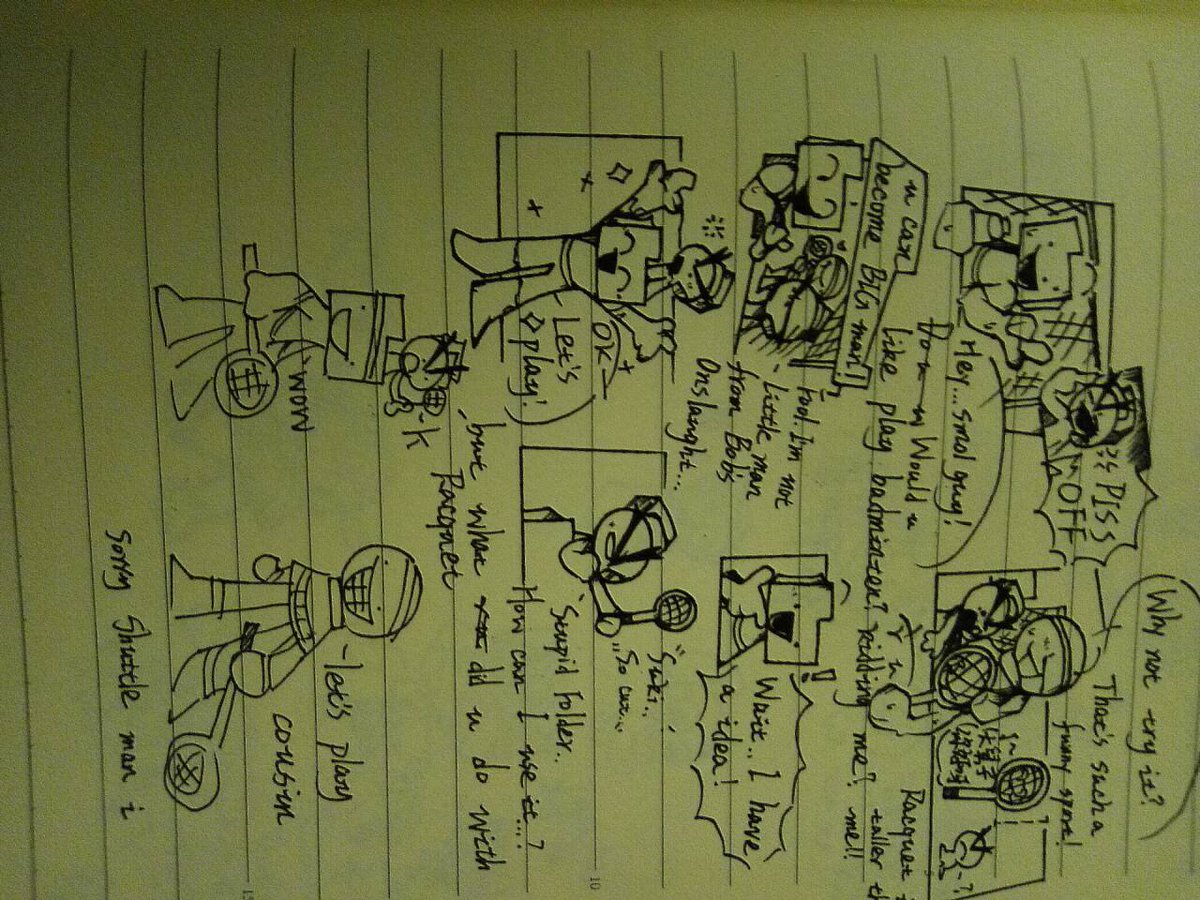 Hey... smol guy!
PISS
OFF
Why not try it?
That's such a
funny sport!
Would u
like play badminton?
Kidding me?
Racquet
taller th
me!!
u can
become BIG man!
Fool. I'm not
Little man
from Bob's
Onslaught...
Wait.. I have
a idea!
OK
Let's
play!
"Suki..
"So cut...
'Stupid folder..
How can I use it...?
-but what did u do with
Racquet
-k
'won
-let's play
cousin
Sorry Shuttle man i
10